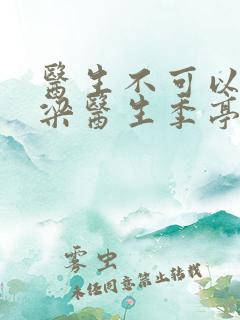 醫生不可以
梁醫生季亭
霧虫
未经同意禁止转载